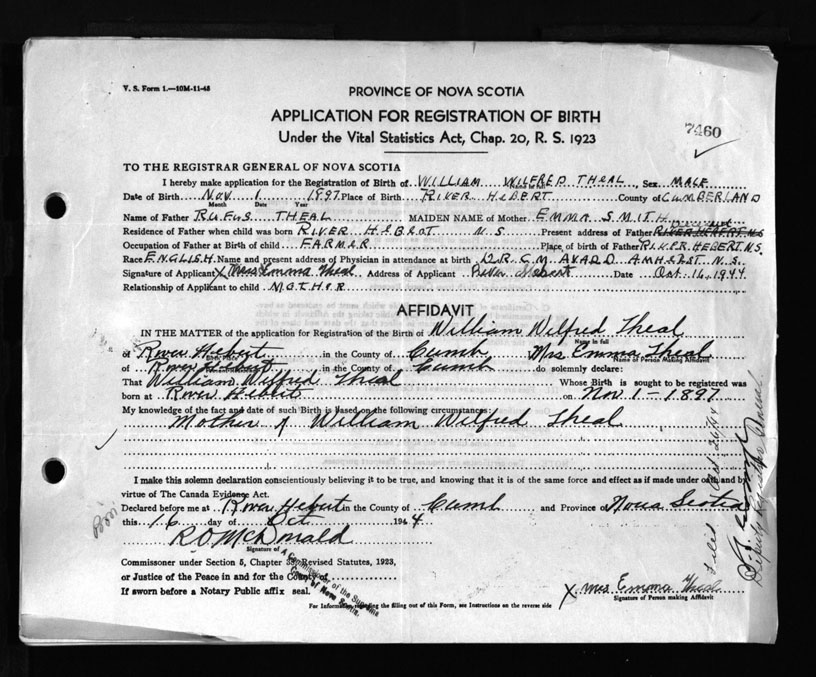 V. S. Form 1.—10M-11-43
PROVINCE OF NOVA SCOTIA
APPLICATION FOR REGISTRATION OF BIRTH
Under the Vital Statistics Act, Chap. 20, R. S. 1923
7460
TO THE REGISTRAR GENERAL OF NOVA SCOTIA
I hereby make application for the Registration of Birth of WILLIAM WILFRED THEAL, Sex MALE
Name in full
Date of Birth NOV 1 1897 Place of Birth RIVER HEBERT County of CUMBERLAND
Month Date Year
Name of Father RUFUS THEAL MAIDEN NAME of Mother EMMA SMITH
Residence of Father when child was born RIVER HEBROT N.S. Present address of Father RIVER HEBERT N.S.
Occupation of Father at Birth of child FARMER Place of birth of Father RIVER HEBERT N.S.
Race ENGLISH Name and present address of Physician in attendance at birth DR. C.M. AVARD AMHERST N.S.
Signature of Applicant X Mrs Emma Theal Address of Applicant River Hebert Date Oct. 16, 1944
Relationship of Applicant to child MOTHER
AFFIDAVIT
IN THE MATTER of the application for Registration of the Birth of William Wilfred Theal
Name in full
of River Hebert in the County of Cumb Mrs Emma Theal
Birth Place Name of Person Making Affidavit
of River Hebert in the County of Cumb do solemnly declare:
That William Wilfred Theal Whose Birth is sought to be registered was
born at River Hebert on Nov 1 - 1897
My knowledge of the fact and date of such Birth is based on the following circumstances:
Mother of William Wilfred Theal
I make this solemn declaration conscientiously believing it to be true, and knowing that it is of the same force and effect as if made under oath and by
virtue of The Canada Evidence Act.
Declared before me at River Hebert in the County of Cumb and Province of Nova Scotia
this 16 day of Oct 1944
R O McDonald
Signature of
A Commissioner of the Supreme
Court of Nova Scotia.
Commissioner under Section 5, Chapter 38, Revised Statutes, 1923,
or Justice of the Peace in and for the County of
If sworn before a Notary Public affix seal.
X Mrs Emma Theal
Signature of Person making Affidavit
For Information regarding the filling out of this Form, see Instructions on the reverse side
Filed Oct 26/44
Deputy Registrar General